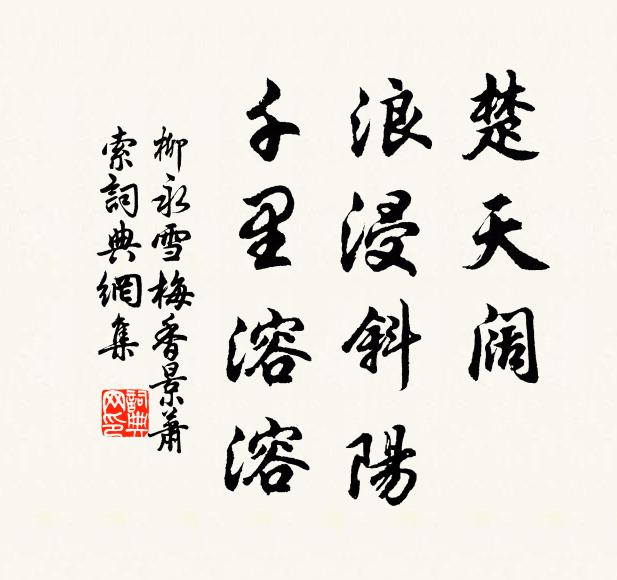 楚天阔
浪浸斜陽
千里溶溶
柳永雪梅香景蕭
索詞典網集
詞典
网印